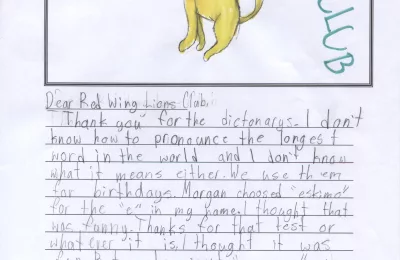 CLUB
Dear Red Wing Lions Club,
Thank you for the dictonarys. I don't
know how to pronounce the longest
word in the world and I don't know
what it means either. We use them
for birthdays. Morgan choosed "eskimo"
for the "e" in my name. I thought that
was funny. Thanks for that test or
what ever it is, I thought it was